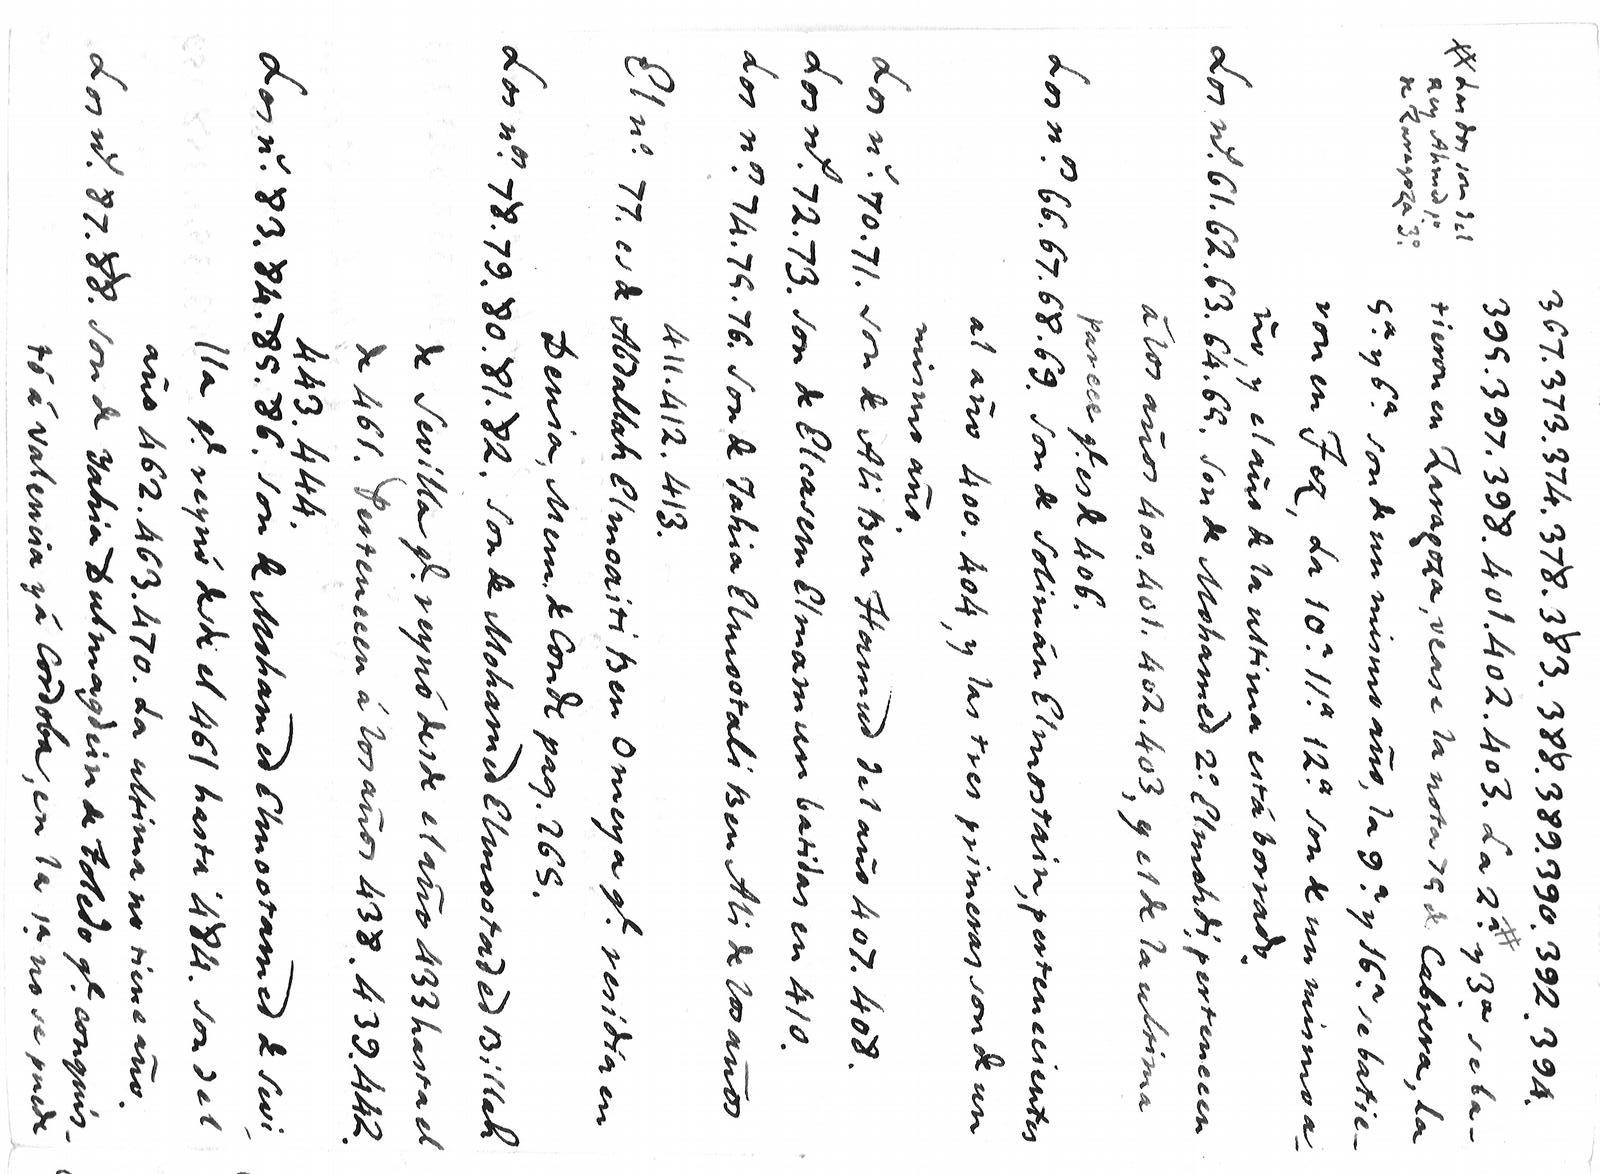 367.373.374.378.383.388.389.390.392.394.
395.397.398.401.402.403. La 2ª # y 3ª se ba-
tieron en Zaragoza, vease la nota 79 de Cabrera, la
5ª y 6ª son de un mismo año, la 9ª y 16ª se batie-
ron en Fez, La 10ª 11ª 12ª son de un mismo a-
ño, y el año de la ultima está borrado.
# Las dos son del
rey Ahmed 1º
de Zaragoza 3º.
Los nº. 61.62.63.64.65. son de Mohamed 2º Elmohdi, pertenecen
á los años 400.401.402.403, y el de la ultima
parece qe. es de 406.
Los nos. 66.67.68.69. son de Solimán Elmostain, pertenecientes
al año 400.404, y las tres primeras son de un
mismo año.
Los nº. 70.71. son de Ali Ben Hamud del año 407.408.
Los nº. 72.73. son de Elcasem Elmamun batidas en 410.
Los nos. 74.75.76. son de Jahia Elmootali Ben Ali de los años
411.412.413.
El nº. 77. es de Abdallah Elmoaiti Ben Omeya qe. residia en
Denia, Mem. de Conde pag. 265.
Los nos. 78.79.80.81.82. son de Mohamed Elmootaded Billah
de Sevilla qe. reynó desde el año 433 hasta el
de 461. Pertenecen á los años 438.439.442.
443.444.
Los nº. 83.84.85.86. son de Mohamed Elmootamed de Sevi
lla qe. reynó desde el 461 hasta 484. son del
año 462.463.470. La ultima no tiene año.
Los nº. 87.88. son de Yahia Dulmagdein de Toledo qe. conquis-
tó á Valencia y á Cordoba, en la 1ª no se puede